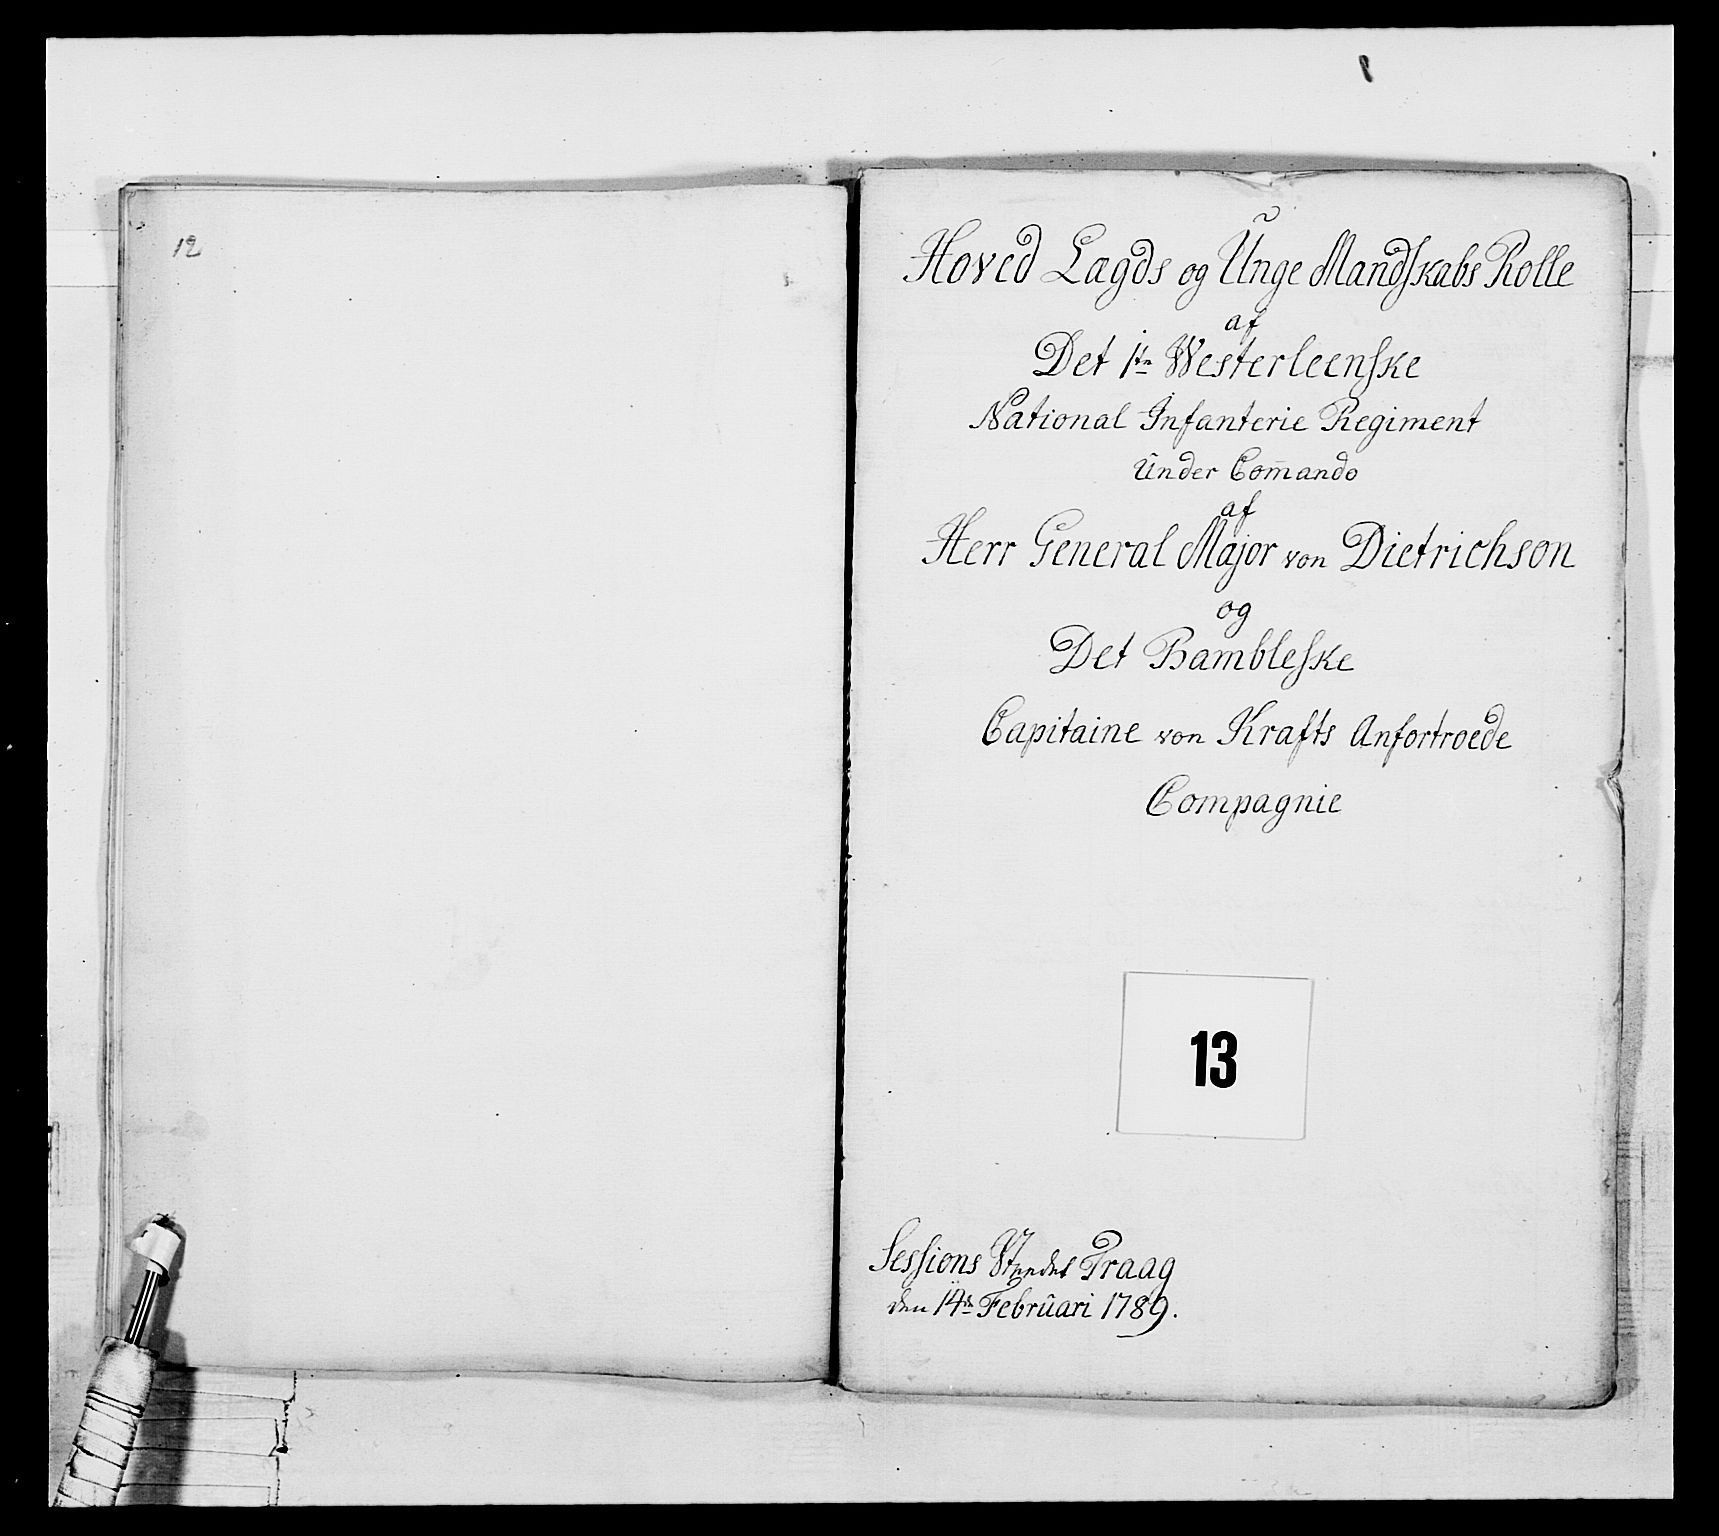 12
Hoved Lægds og Unge Mandskabs Rolle
af
Det 1te Westerleenske
National Infanterie Regiment
Under Com̄ando
af
Herr General Major von Dietrichson
og
Det Bambleske
Capitaine von Krafts Anfortroede
Compagnie
13
Sessions Stædet Traag
den 14de Februari 1789.